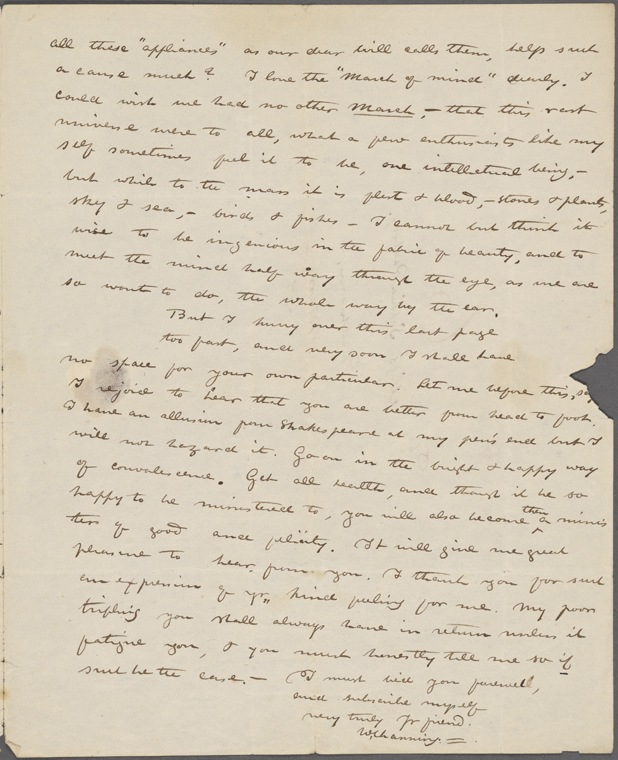 all these "appliances" as our dear Will calls them, help such
a cause much? I love the "March of mind" dearly. I
could wish we had no other March, – that this vast
universe were to all, what a few enthusiasts like my
self sometimes feel it to be, one intellectual being, –
but while to the mass it is flesh & blood, – stones & plants,
sky & sea, – birds & fishes – I cannot but think it
wise to be ingenious in the fabric of beauty, and to
meet the mind half way through the eye, as we are
so wont to do, the whole way by the ear.
But I hurry over this last page
too fast, and very soon I shall have
no space for your own particular. Let me before this, say
I rejoice to hear that you are better from head to foot.
I have an allusion from Shakespeare at my pen's end but I
will not hazard it. Go on in the bright & happy way
of convalescence. Get all health, and though it be so
happy to be ministered to, you will also become then a minis
ter of good and felicity. It will give me great
pleasure to hear from you. I thank you for such
an expression of yr. kind feeling for me. My poor
trifling you shall always have in return unless it
fatigue you, & you must honestly tell me so if
such be the case. – I must bid you farewell,
and subscribe myself
very truly yr friend.
W. Channing. –